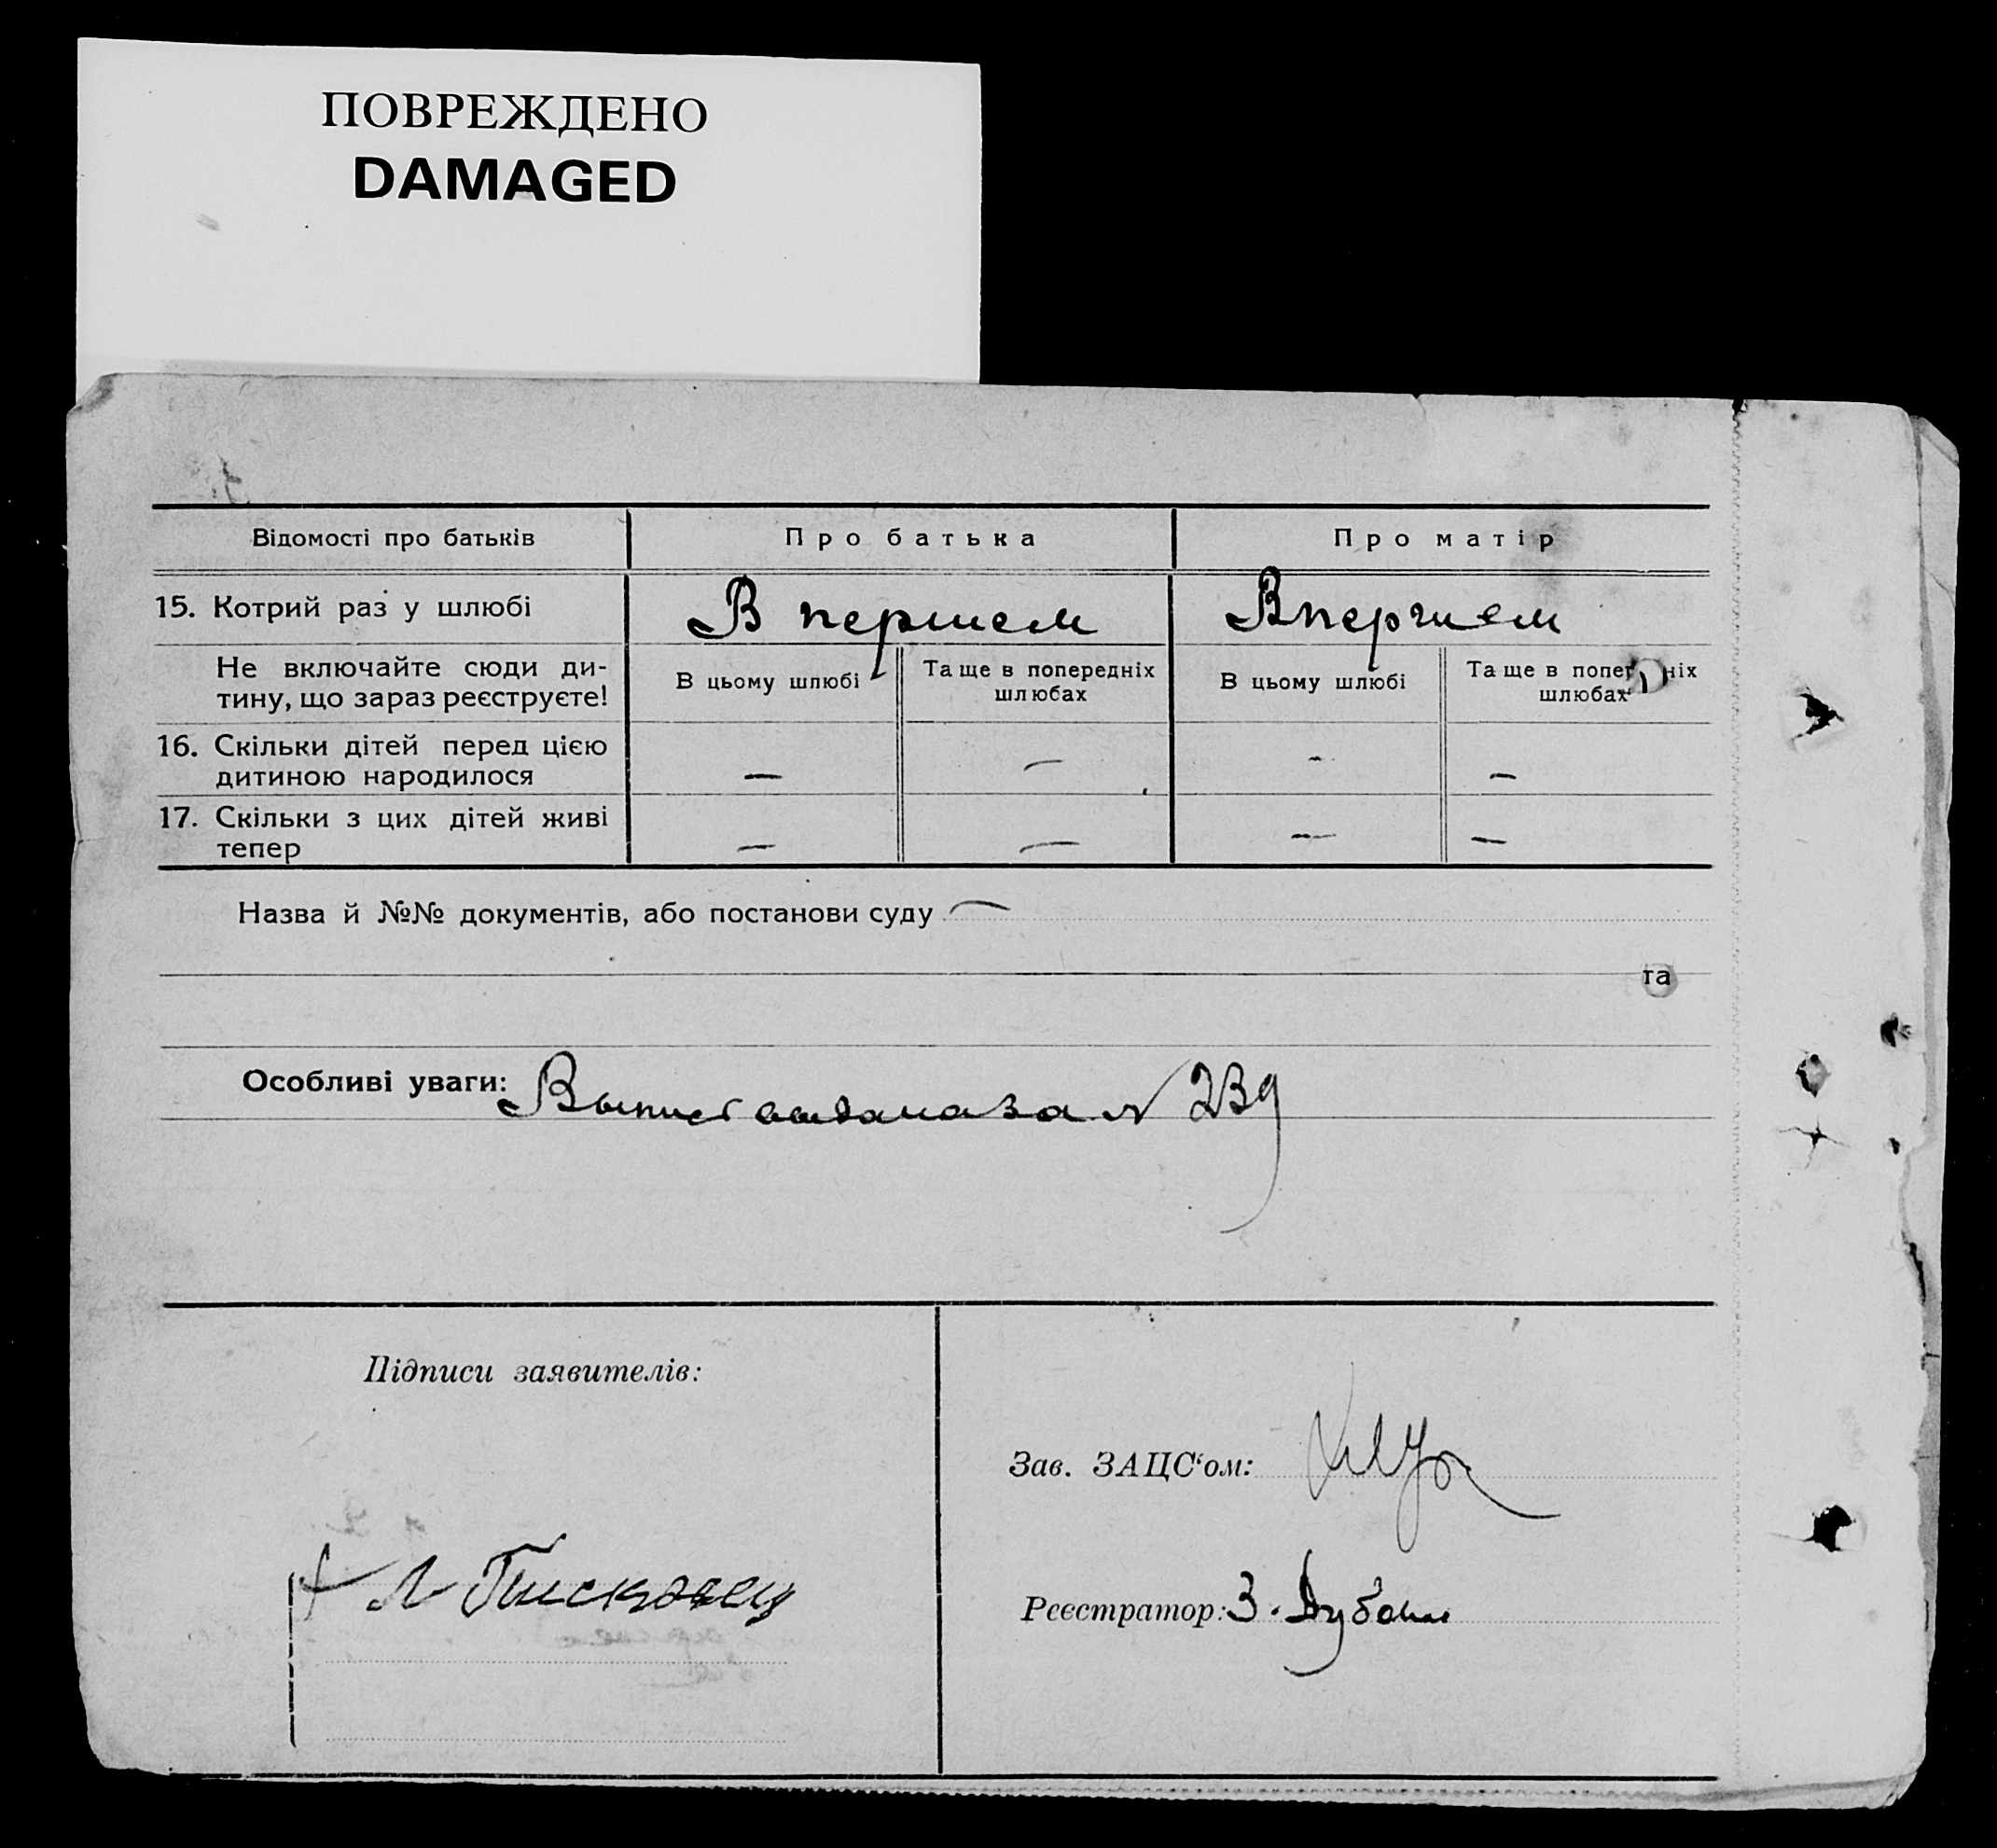 ПОВРЕЖДЕНО
DAMAGED
Відомості про батьків
Про батька
Про матір
15. Котрий раз у шлюбі
В першем
Впершем
Не включайте сюди ди-
тину, що зараз реєструєте!
В цьому шлюбі
Та ще в попередніх
шлюбах
В цьому шлюбі
Та ще в попередніх
шлюбах
16. Скільки дітей перед цією
дитиною народилося
—
—
-
—
17. Скільки з цих дітей живі
тепер
—
—
—
—
Назва й №№ документів, або постанови суду —
та
Особливі уваги: Выпись выдана за N 239
Підписи заявителів:
Зав. ЗАЦС‘ом:
Реєстратор: З.